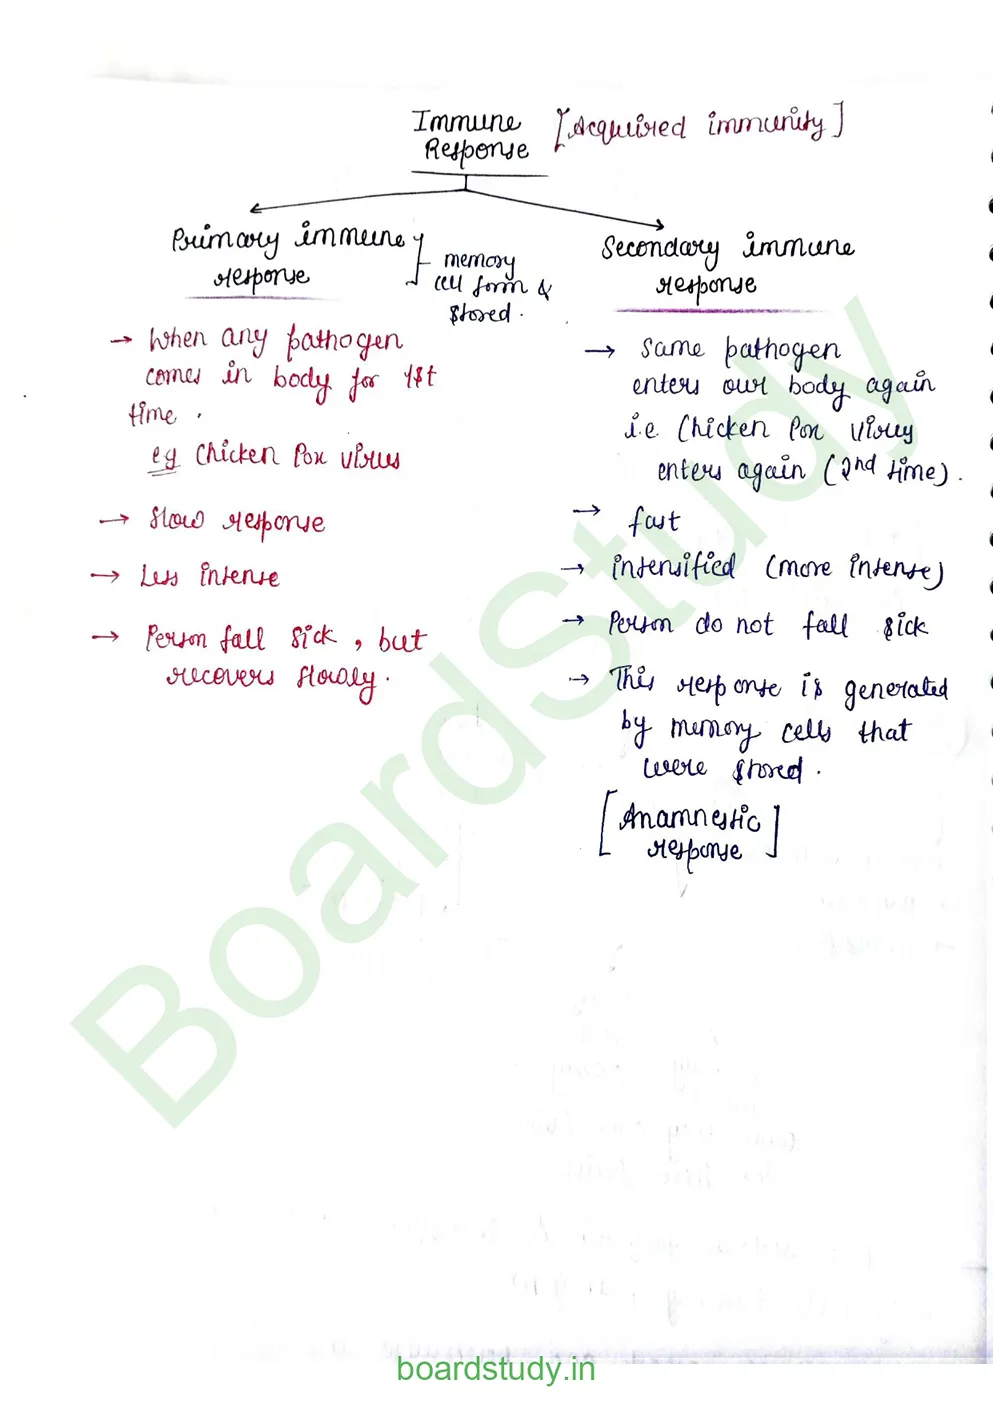 Immune [Acquired immunity]
Response
Primary immune
response
memory
cell form &
stored.
→ When any pathogen
comes in body for 1st
time.
eg Chicken Pox virus
→ Slow response
→ Less intense
→ Person fall sick, but
recovers slowly.
Secondary immune
response
→ Same pathogen
enters our body again
i.e. Chicken Pox virus
enters again (2nd time).
→ fast
→ intensified (more intense)
→ Person do not fall sick
→ This response is generated
by memory cells that
were stored.
[Anamnestic
response]
BoardStudy
boardstudy.in